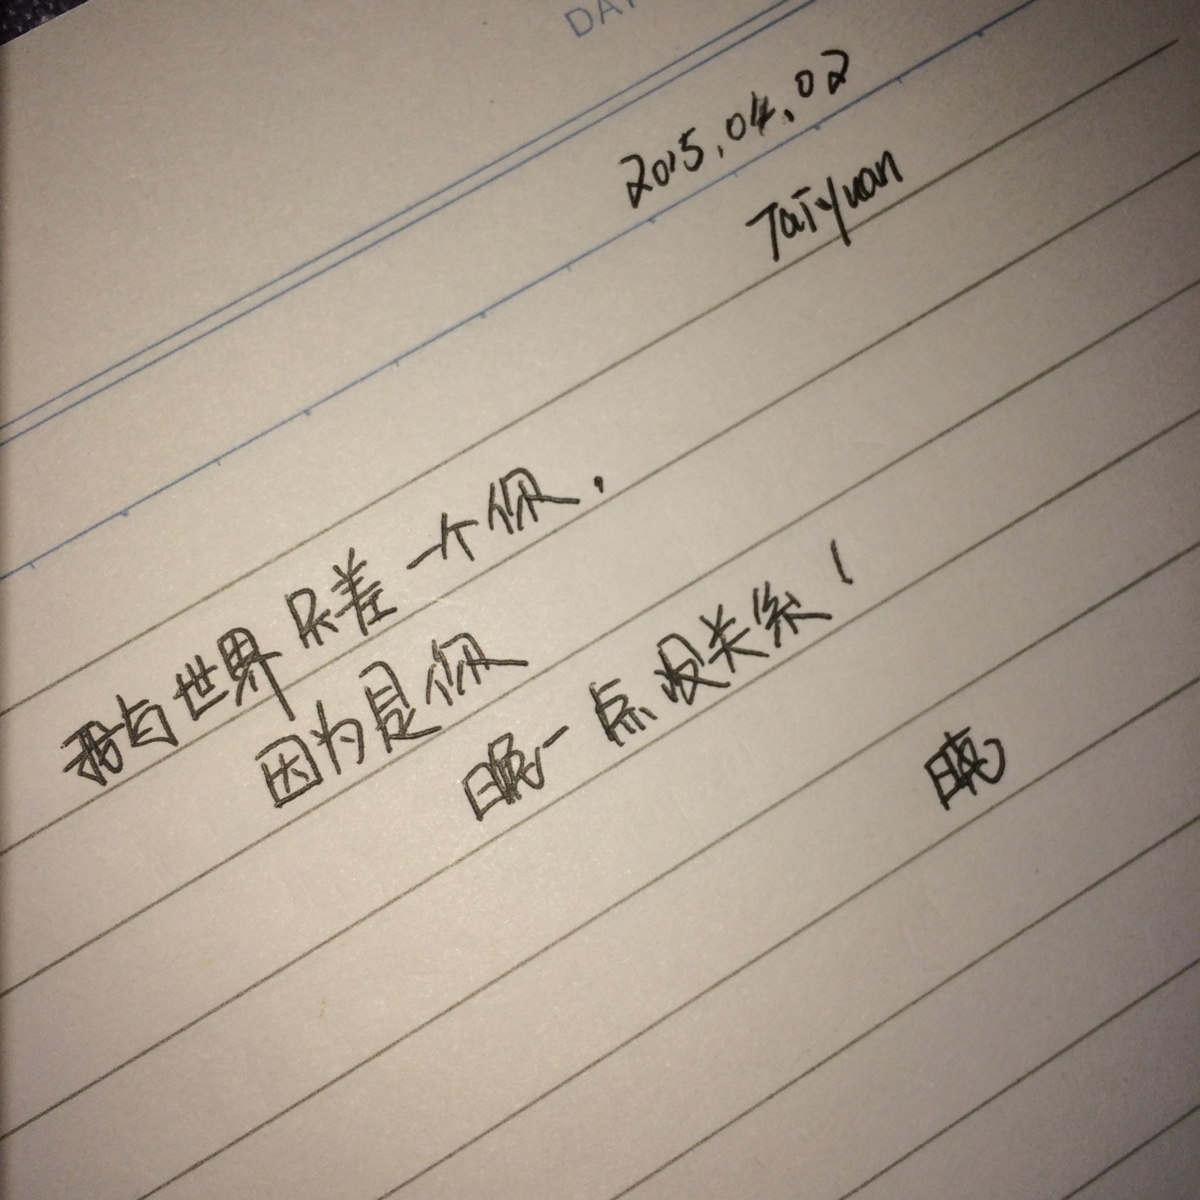 DAT
2015.04.02
Taiyuan
我与世界只差一个你.
因为是你
晚一点没关系!
晓